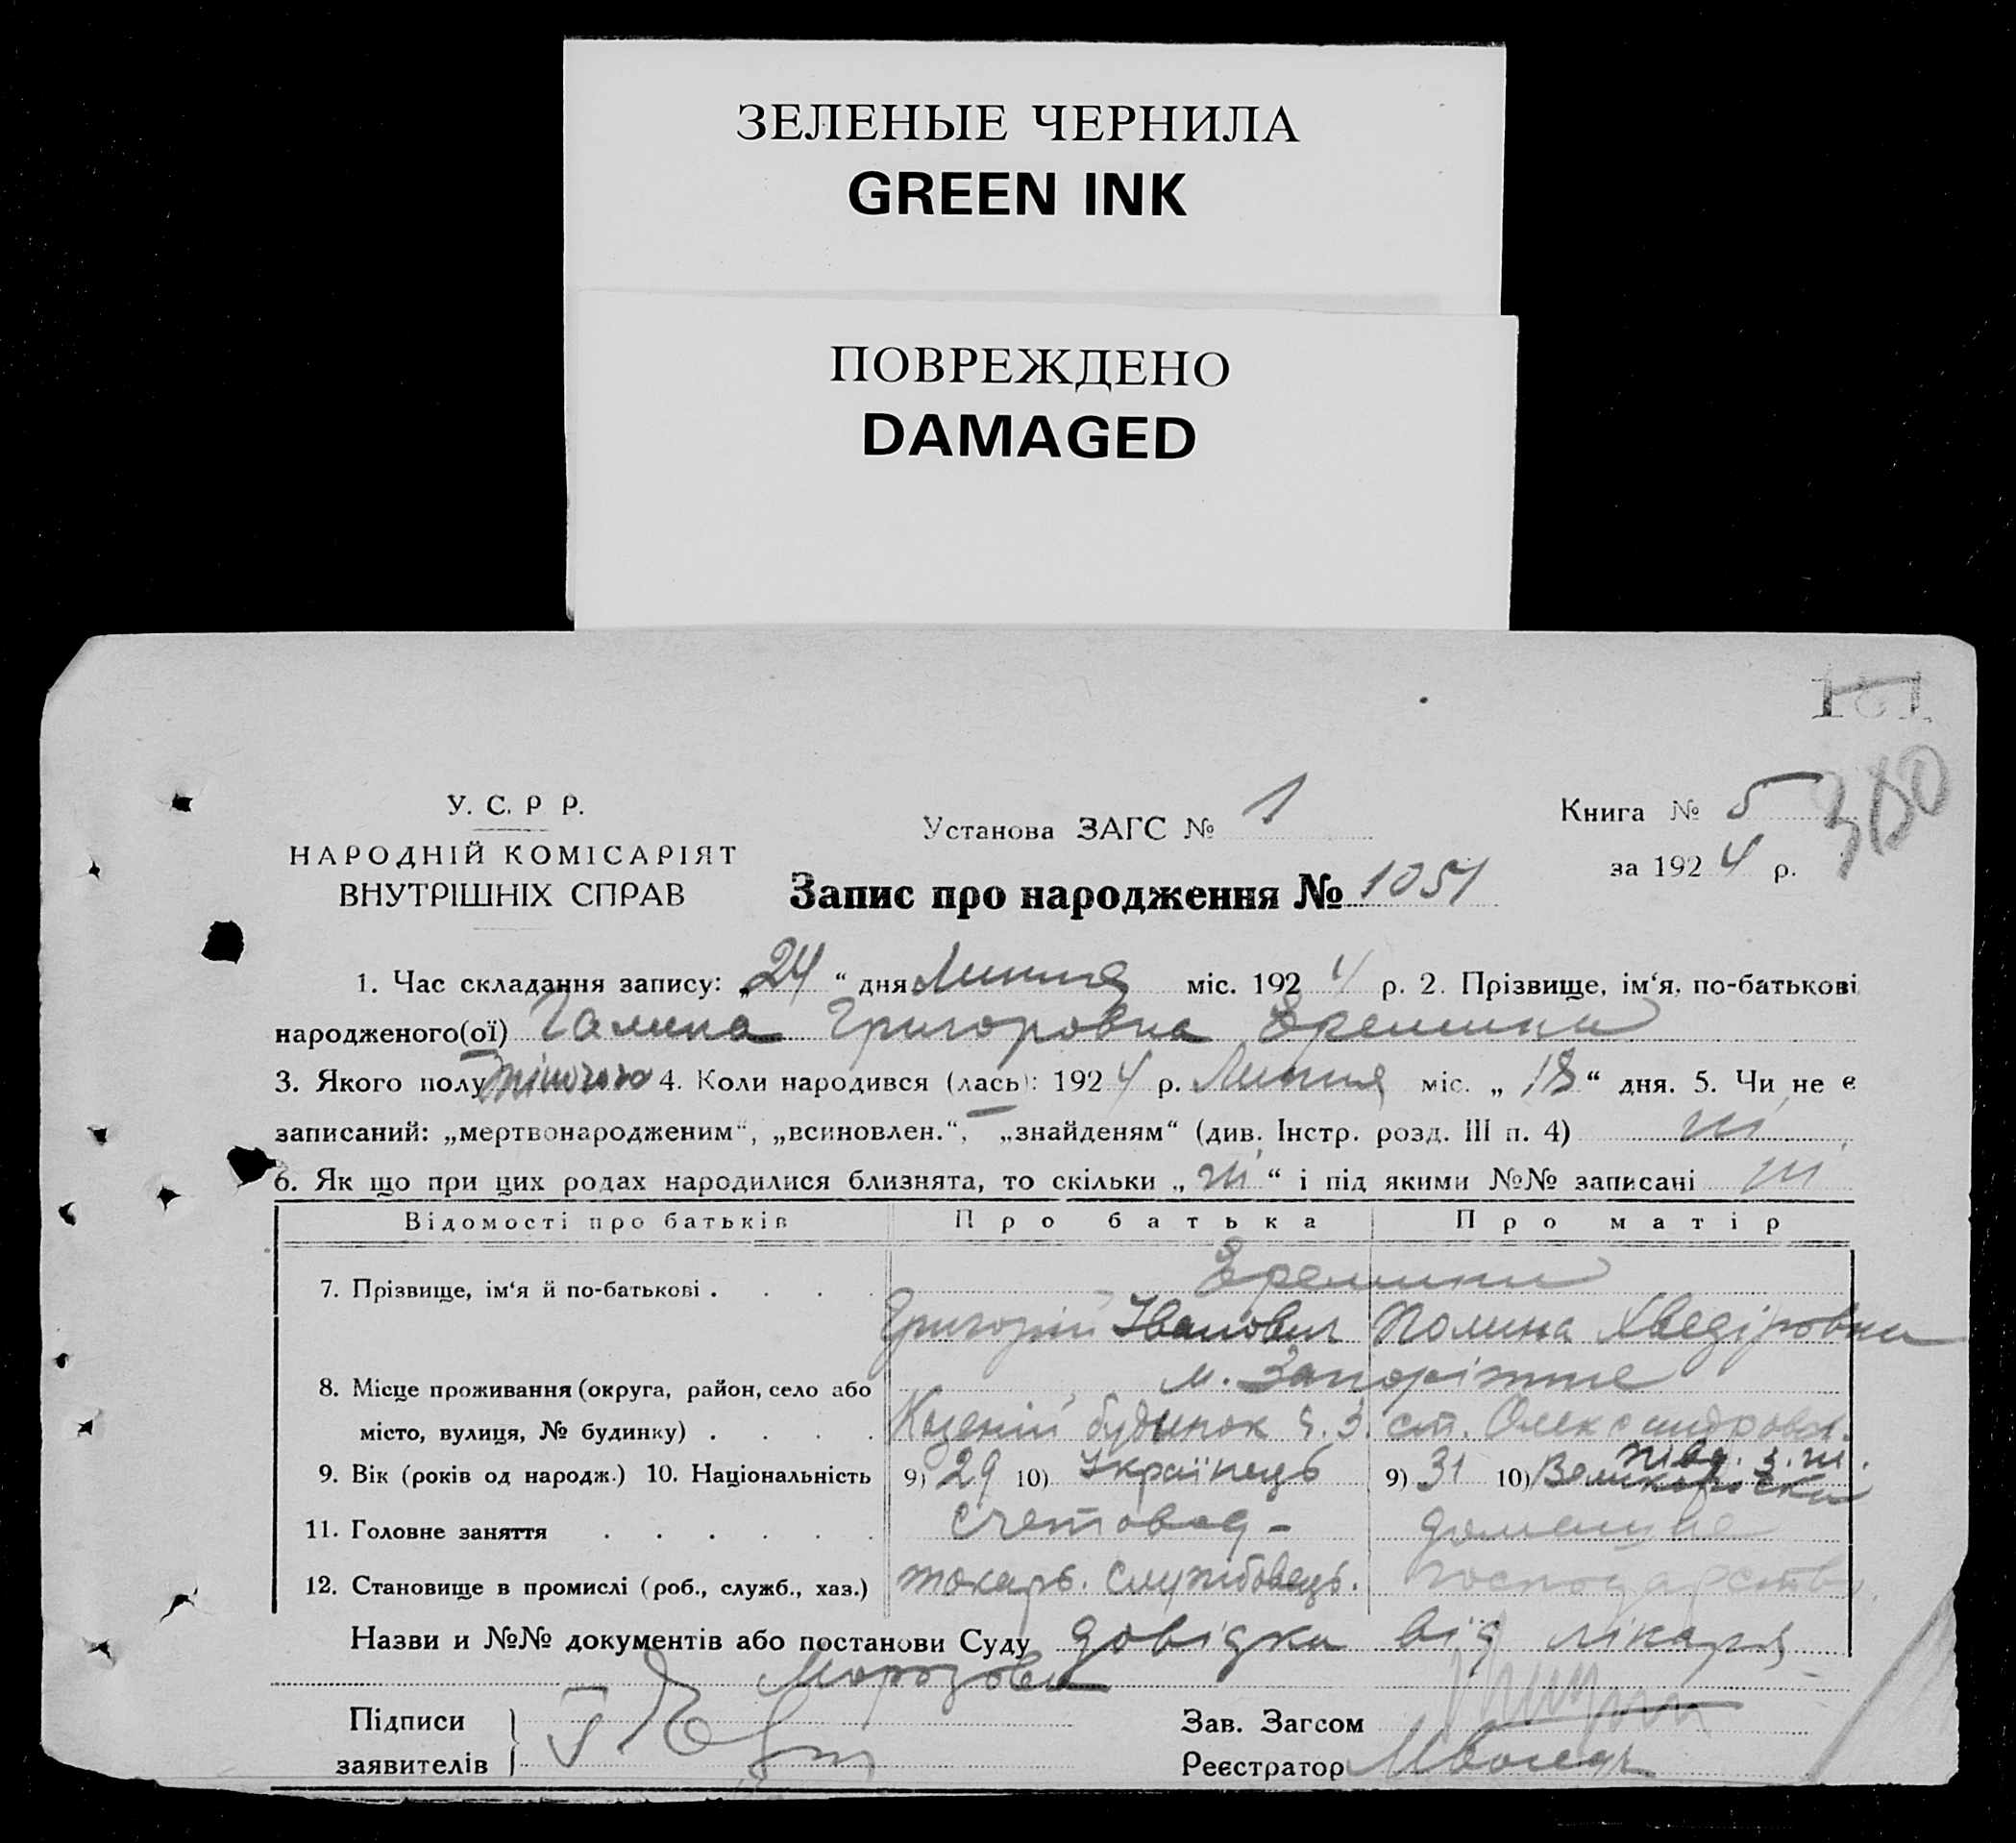 ЗЕЛЕНЫЕ ЧЕРНИЛА
GREEN INK
ПОВРЕЖДЕНО
DAMAGED
181
380
У. С. Р Р.
НАРОДНІЙ КОМІСАРІЯТ
ВНУТРІШНІХ СПРАВ
Установа ЗАГС № 1
Книга № 5
за 1924 р.
Запис про народження № 1051
1. Час складання запису: „24“ дня Липня міс. 1924 р. 2. Прізвище, ім‘я, по-батькові
народженого(ої) Галина Григоровна
3. Якого полу жіночого 4. Коли народився (лась): 1924 р. Липня міс. „18“ дня. 5. Чи не є
записаний: „мертвонародженим“, „всиновлен.“, „знайденям“ (див. Інстр. розд. III п. 4) ні
6. Як що при цих родах народилися близнята, то скільки „ні“ і під якими №№ записані ні
Відомості про батьків Про батька Про матір
7. Прізвище, ім‘я й по-батькові
Григорій Іванович Полина Хведіровна
м. Запоріжже
8. Місце проживання (округа, район, село або
місто, вулиця, № будинку) Казеній будинок ч. 3. ст. Олександровск.
півд. з. ш.
9. Вік (років од народж.) 10. Національність 9) 29 10) Українець 9) 31 10) Великороска
11. Головне заняття счетовод - домашнє
12. Становище в промислі (роб., служб., хаз.) токарь. службовець. господарство
Назви и №№ документів або постанови Суду довідка від лікаря
Морозова
Підписи
заявителів
Зав. Загсом
Реєстратор